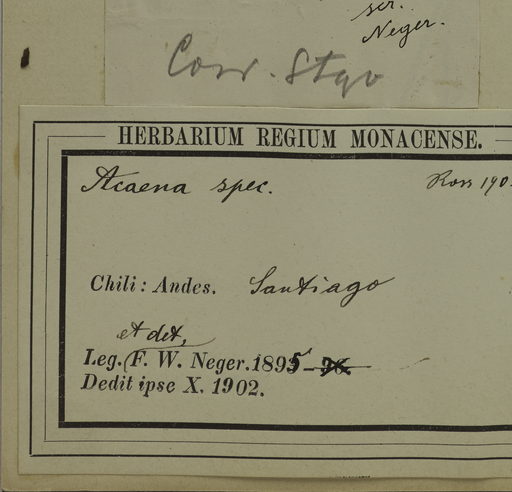 scr.
Neger.
Corr. Stgo
HERBARIUM REGIUM MONACENSE.
Acaena spec.
Ross 190
Chili: Andes. Santiago
et det,
Leg. (F. W. Neger. 1895 - 96.
Dedit ipse X. 1902.